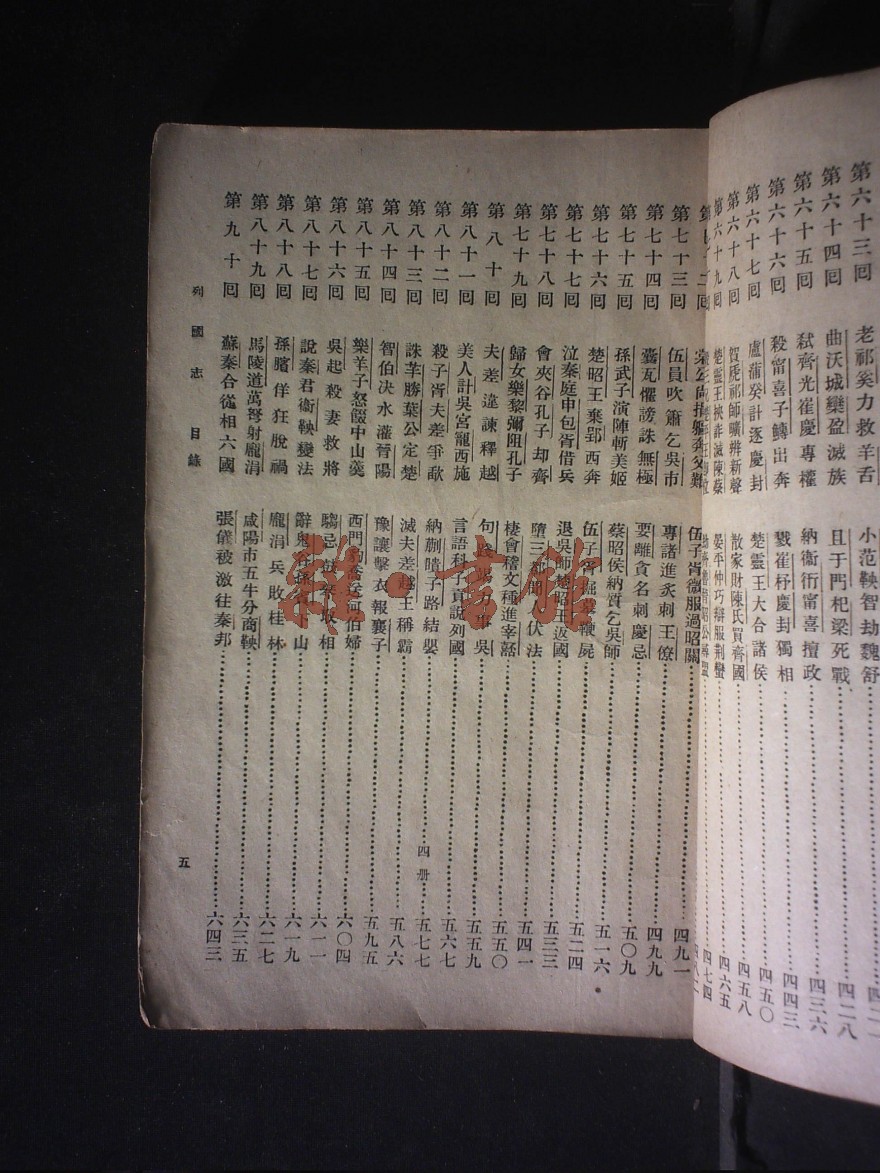 第六十三回 老祁奚力救羊舌 小范鞅智劫魏舒
第六十四回 曲沃城欒盈滅族 且于門杞梁死戰 四二八
第六十五回 弑齊光崔慶專權 納衞衎甯喜擅政 四三六
第六十六回 殺甯喜子鱄出奔 戮崔杼慶封獨相 四四三
第六十七回 盧蒲癸計逐慶封 楚靈王大合諸侯 四五〇
第六十八回 賀虒祁師曠辨新聲 散家財陳氏買齊國 四五八
第六十九回 楚靈王挾詐滅陳蔡 晏平仲巧辯服荆蠻 四六五
四七四
伍子胥微服過昭關
第七十三回 伍員吹簫乞吳市 專諸進炙刺王僚 四九一
第七十四回 囊瓦懼謗誅無極 要離貪名刺慶忌 四九九
第七十五回 孫武子演陣斬美姬 蔡昭侯納質乞吳師 五〇九
第七十六回 楚昭王棄郢西奔 伍子胥掘墓鞭屍 五一六
第七十七回 泣秦庭申包胥借兵 退吳師楚昭王返國 五二四
第七十八回 會夾谷孔子却齊 墮三都聞人伏法 五三三
第七十九回 歸女樂黎彌阻孔子 棲會稽文種進宰嚭 五四一
第八十回 夫差違諫釋越 句踐竭力事吳 五五〇
第八十一回 美人計吳宮寵西施 言語科子貢說列國 五五九
第八十二回 殺子胥夫差爭歃 納蒯瞶子路結纓 五六七
第八十三回 誅芈勝葉公定楚 滅夫差越王稱霸 四册 五七七
第八十四回 智伯决水灌晉陽 豫讓擊衣報襄子 五八六
第八十五回 樂羊子怒餟中山羹 西門豹喬送河伯婦 五九五
第八十六回 吳起殺妻救將 騶忌鼓琴取相 六〇四
第八十七回 說秦君衞鞅變法 辭鬼谷孫臏下山 六一一
第八十八回 孫臏佯狂脫禍 龐涓兵敗桂林 六一九
第八十九回 馬陵道萬弩射龐涓 咸陽市五牛分商鞅 六二七
第九十回 蘇秦合從相六國 張儀被激往秦邦 六三五
六四三
列國志 目錄
五
雜·書館